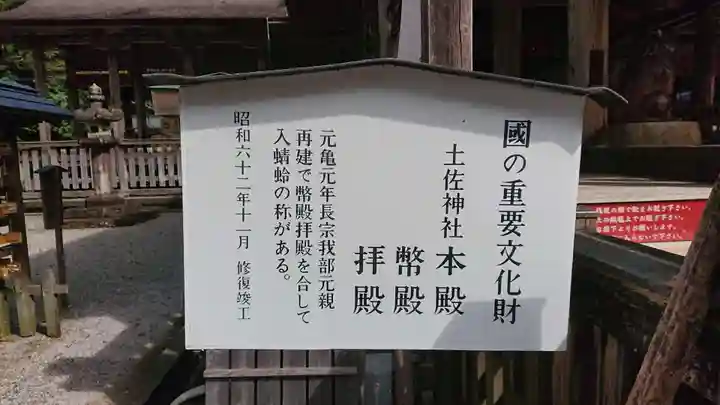 國の重要文化財
土佐神社本殿
幣殿
拝殿
元亀元年長宗我部元親
再建で幣殿拝殿を合して
入蜻蛉の称がある。
昭和六十二年十一月 修復竣工